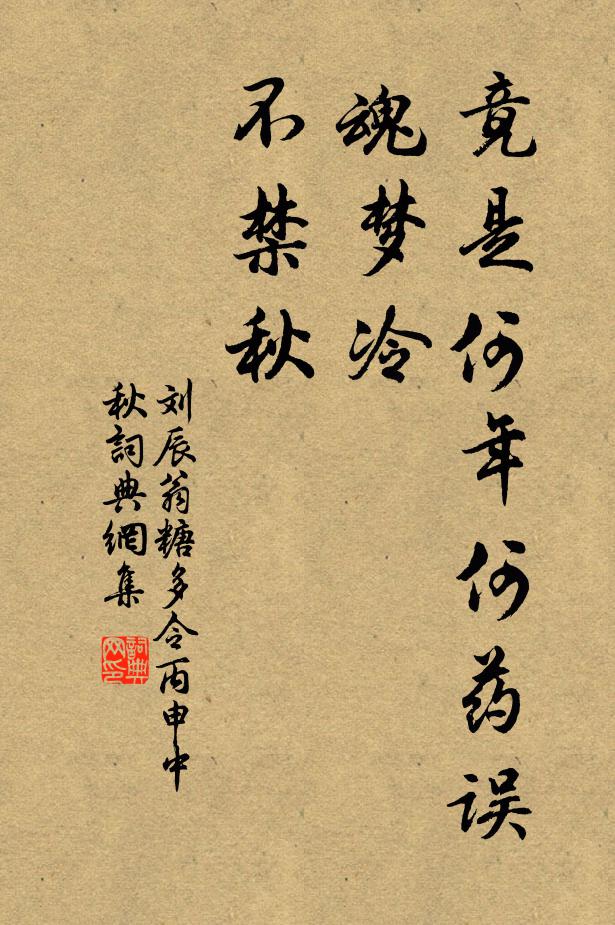 竟是何年何药误
魂梦冷
不禁秋
刘辰翁糖多令丙申中
秋詞典網集
詞典网印